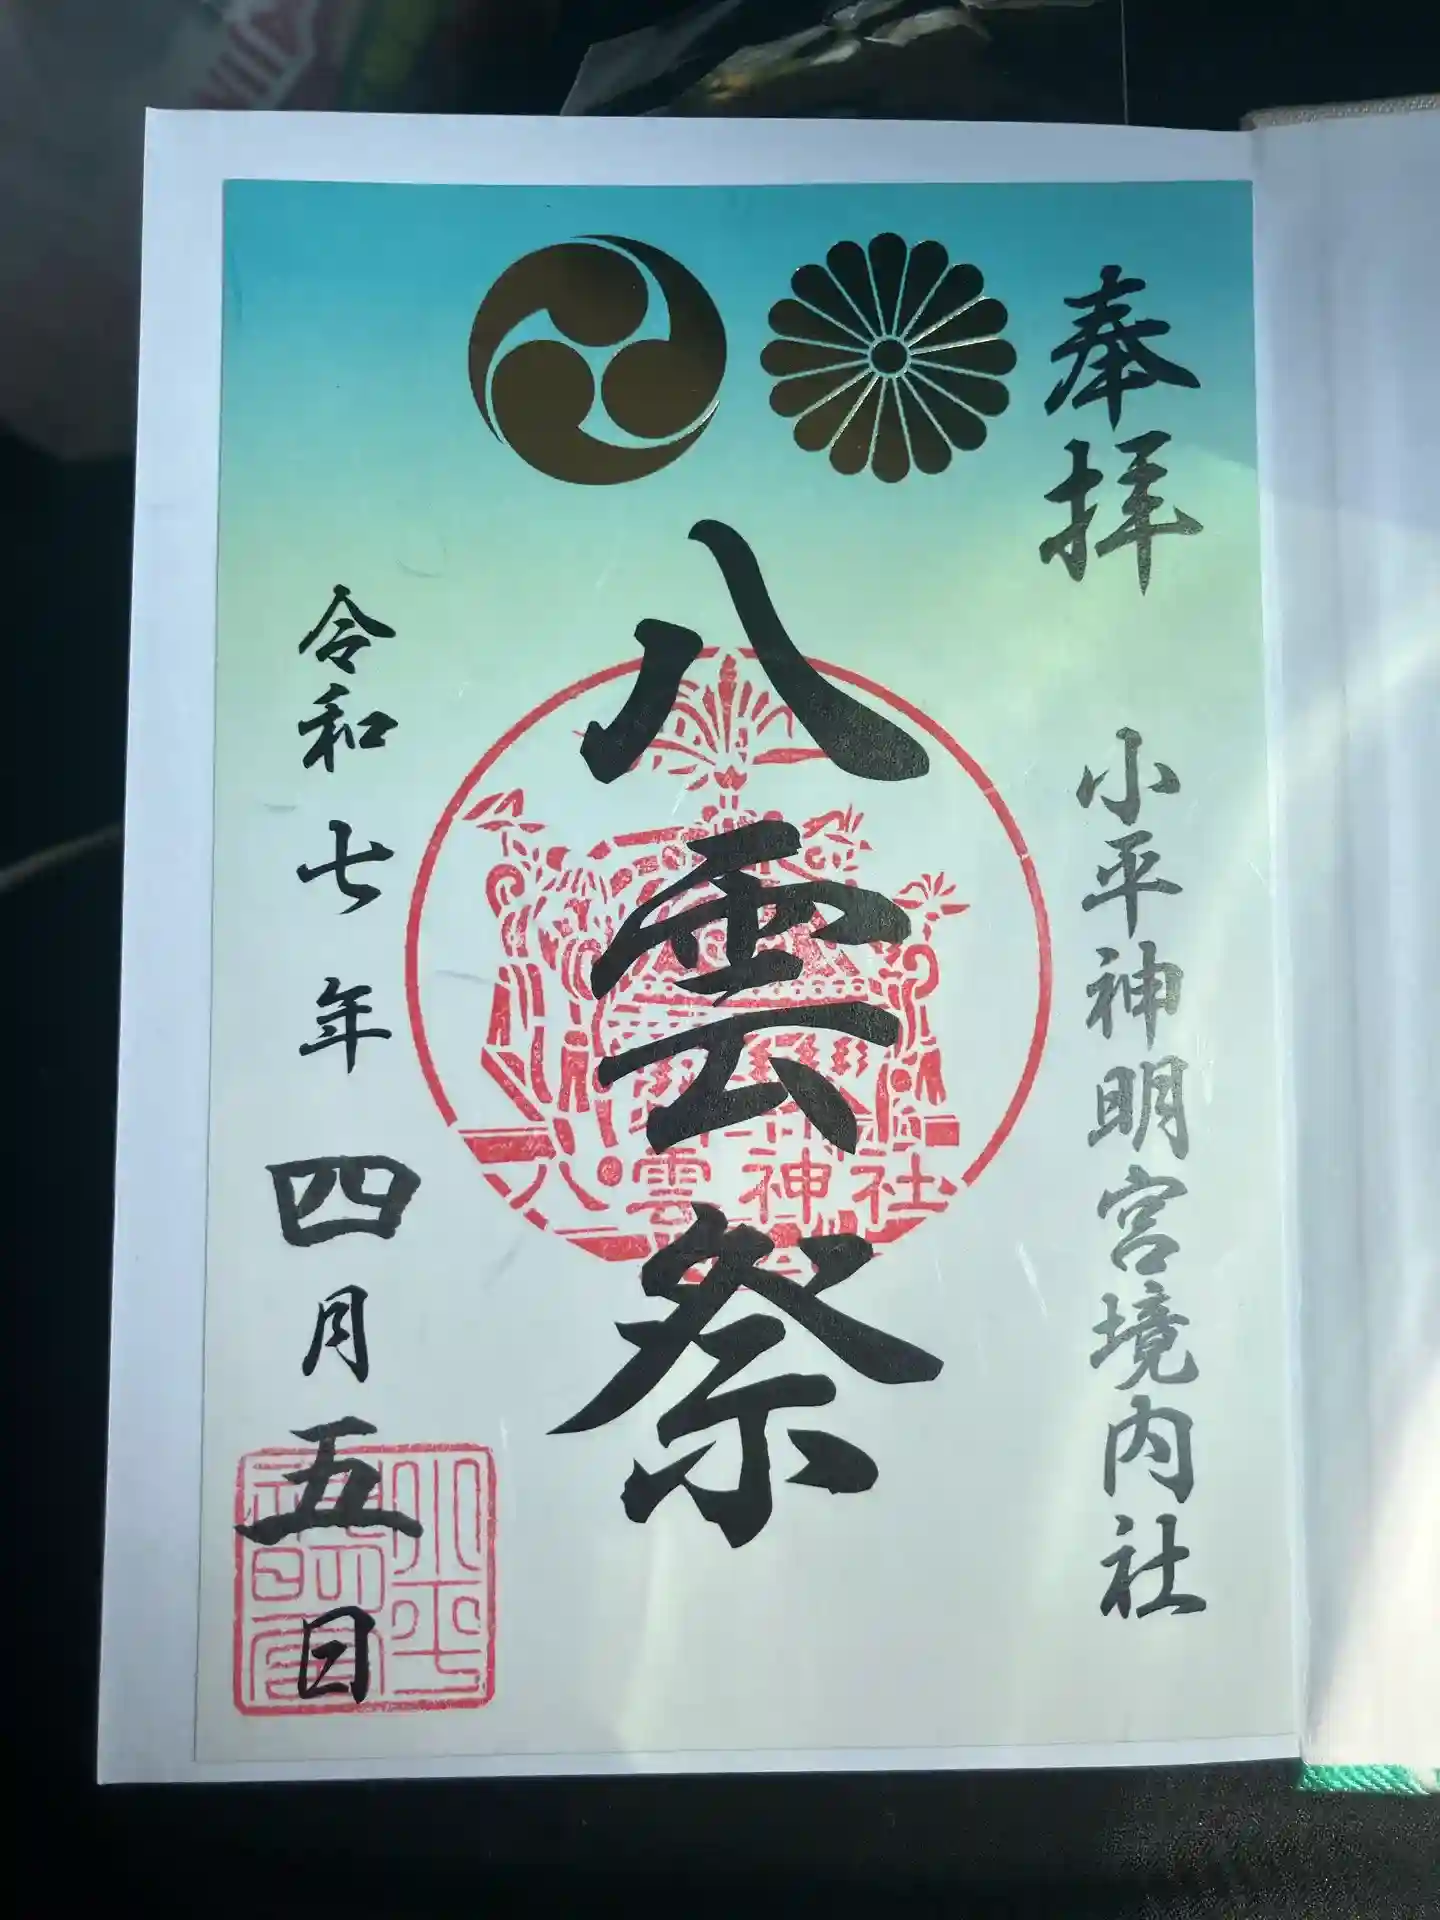 奉拝
小平神明宮境内社
八雲祭
八雲神社
令和七年四月五日
小平
神明宮